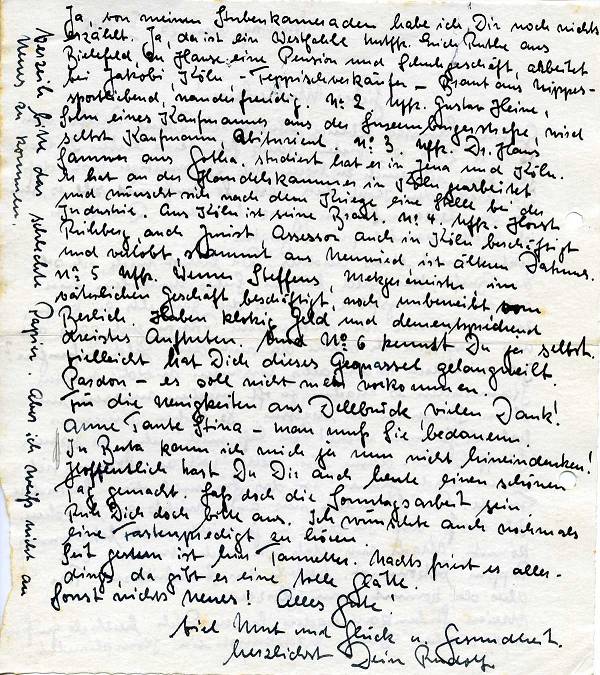 Ja, von meinen Stubenkameraden habe ich Dir noch nichts
erzählt. Ja, da ist ein Westfale Uffz. Erich Ruthe aus
Bielefeld, zu Hause eine Pension und Schuhgeschäft, arbeitet
bei Jakobi, Köln, - Teppichverkäufer - Braut aus Nippes -
sportliebend, wanderfreudig. No 2. Uffz. Gustav Heine,
Sohn eines Kaufmannes aus der Luxemburgerstraße, wird
selbst Kaufmann, Abiturient. No 3. Uffz. Dr. Hans
Sammer aus Gotha. studiert hat er in Jena und Köln.
Er hat an der Handelskammer in Köln gearbeitet
und wünscht sich nach dem Kriege eine Stelle bei der
Industrie. Aus Köln ist seine Braut. No 4. Uffz. Horst
Rühberg auch Jurist, Assessor auch in Köln beschäftigt
und verlobt, stammt aus Neuwied ist älteren Datums.
No 5 Uffz. Werner Steffens, Metzgermeister, im
väterlichen Geschäft beschäftigt, noch unbeweibt vom
Berlich. Haben klotzig Geld und dementsprechend
dreistes Auftreten. Und No 6 kennst Du ja selbst.
Vielleicht hat Dich dieses Gequassel gelangweilt.
Pardon - es soll nicht mehr vorkommen.
Für die Neuigkeiten aus Dellbrück vielen Dank!
Arme Tante Stina - man muß Sie bedauern.
In Berta kann ich mich ja nun nicht hineindenken!
Hoffentlich hast Du Dir auch heute einen schönen
Tag gemacht. Laß doch die Sonntagsarbeit sein.
Ruh Dich doch bitte aus. Ich wünschte auch nochmals
eine Fastenpredigt zu hören.
Seit gestern ist hier Tauwetter. Nachts friert es aller-
dings, da gibt es eine tolle Glätte.
Sonst nichts Neues! Alles Gute!
Viel Mut und Glück u. Gesundheit.
herzlichst Dein Rudolf
Verzeih bitte das schlechte Papier. Aber ich weiß nicht an
Neues zu kommen.